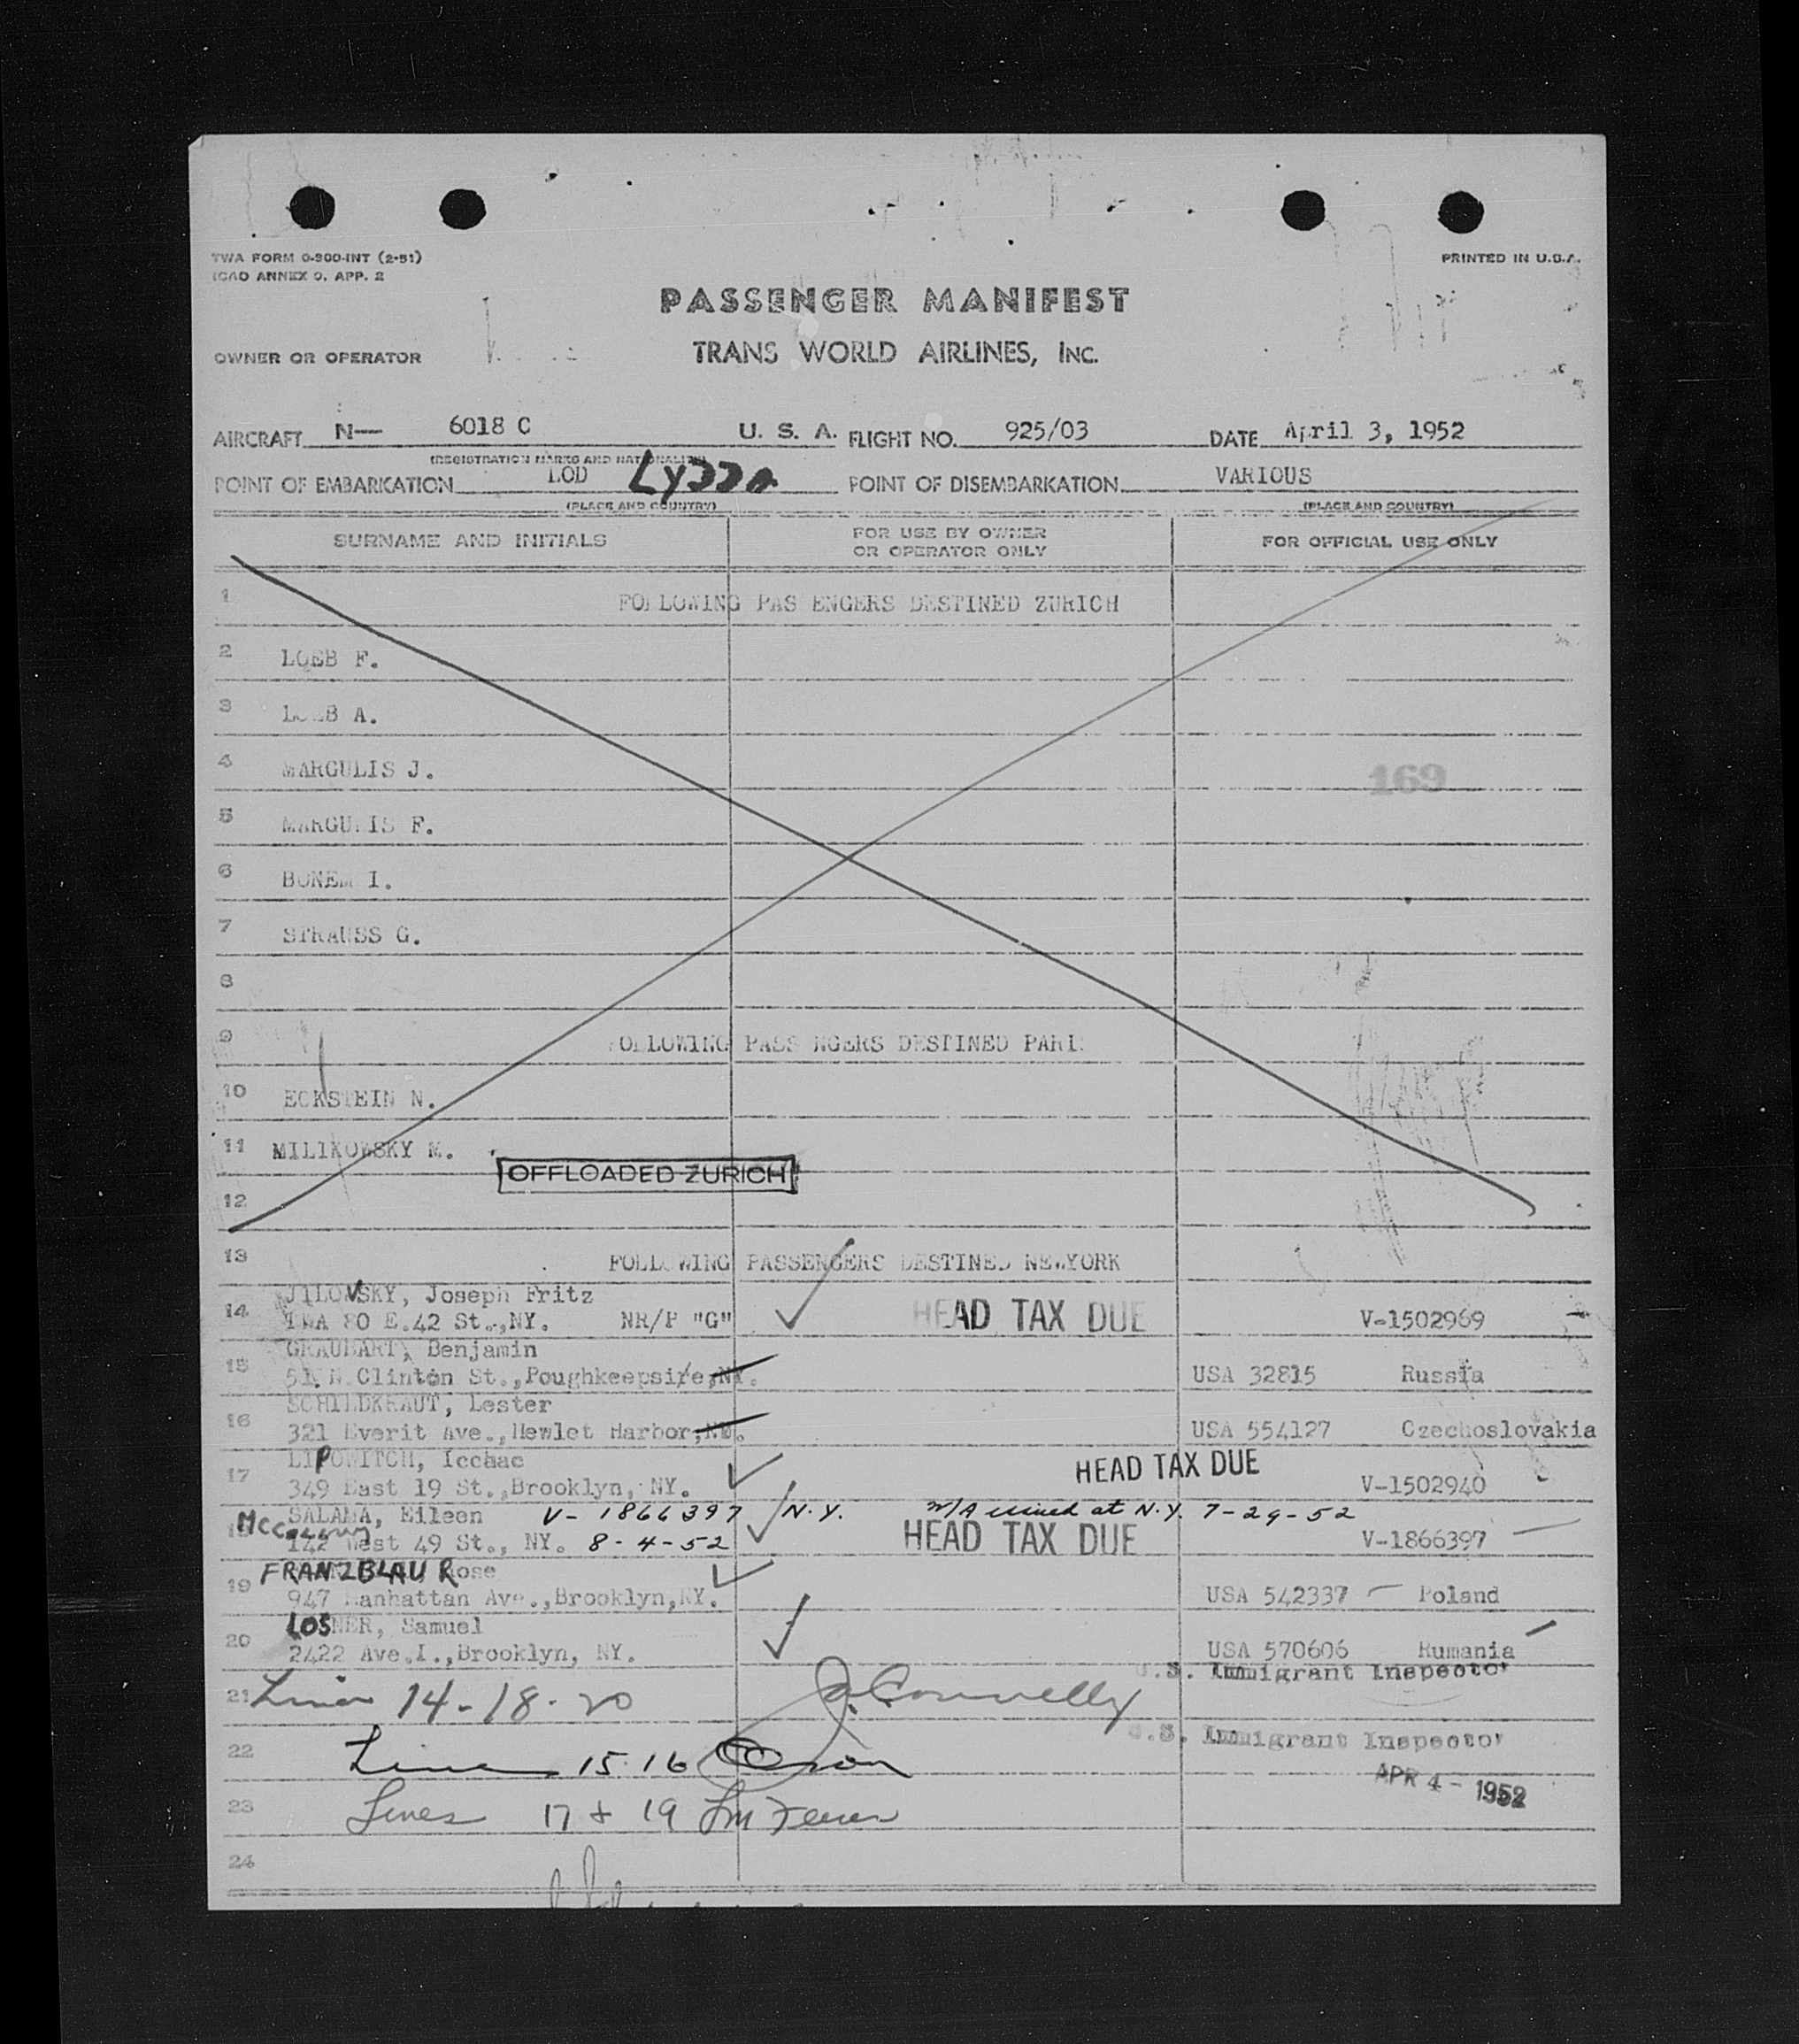 TWA FORM 0-900-INT (2-51)
ICAO ANNEX 9, APP. 2
PRINTED IN U.S.A.
PASSENGER MANIFEST
OWNER OR OPERATOR TRANS WORLD AIRLINES, INC.
AIRCRAFT N— 6018 C U. S. A. FLIGHT NO. 925/03 DATE April 3, 1952
(REGISTRATION MARKS AND NATIONALITY)
POINT OF EMBARKATION LOD LYDDA POINT OF DISEMBARKATION VARIOUS
(PLACE AND COUNTRY) (PLACE AND COUNTRY)
SURNAME AND INITIALS FOR USE BY OWNER OR OPERATOR ONLY FOR OFFICIAL USE ONLY
1 FOLLOWING PAS ENGERS DESTINED ZURICH
2 LOEB F.
3 LOEB A.
4 MARGULIS J.
169
5 MARGULIS F.
6 BONEM I.
7 STRAUSS G.
8
9 FOLLOWING PASS NGERS DESTINED PARIS
10 ECKSTEIN N.
11 MILIKOWSKY M.
OFFLOADED ZURICH
12
13 FOLLOWING PASSENGERS DESTINED NEWYORK
JILOVSKY, Joseph Fritz
14 TWA 80 E.42 St.,NY. NR/P "G" HEAD TAX DUE V-1502969
GRAUBART, Benjamin
15 51 N Clinton St.,Poughkeepsi/e,NY. USA 32815 Russia
SCHILDKRAUT, Lester
16 321 Everit Ave.,Hewlet Harbor, USA 554127 Czechoslovakia
LIPOWITCH, Icchac
17 349 East 19 St.,Brooklyn, NY. HEAD TAX DUE V-1502940
SALAMA, Eileen V- 1866397 N.Y. at N.Y. 7-29-52
18 142 West 49 St., NY. 8-4-52 HEAD TAX DUE V-1866397
FRANZBLAU Rose
19 947 Manhattan Ave.,Brooklyn,NY. USA 542337 Poland
LOSNER, Samuel
20 2422 Ave.I.,Brooklyn, NY. USA 570606 Rumania
U.S. Immigrant Inspector
21 Lines 14-18-20 J. Connelly
U.S. Immigrant Inspector
22 Lines 15-16
APR 4 - 1952
23 Lines 17 & 19
24